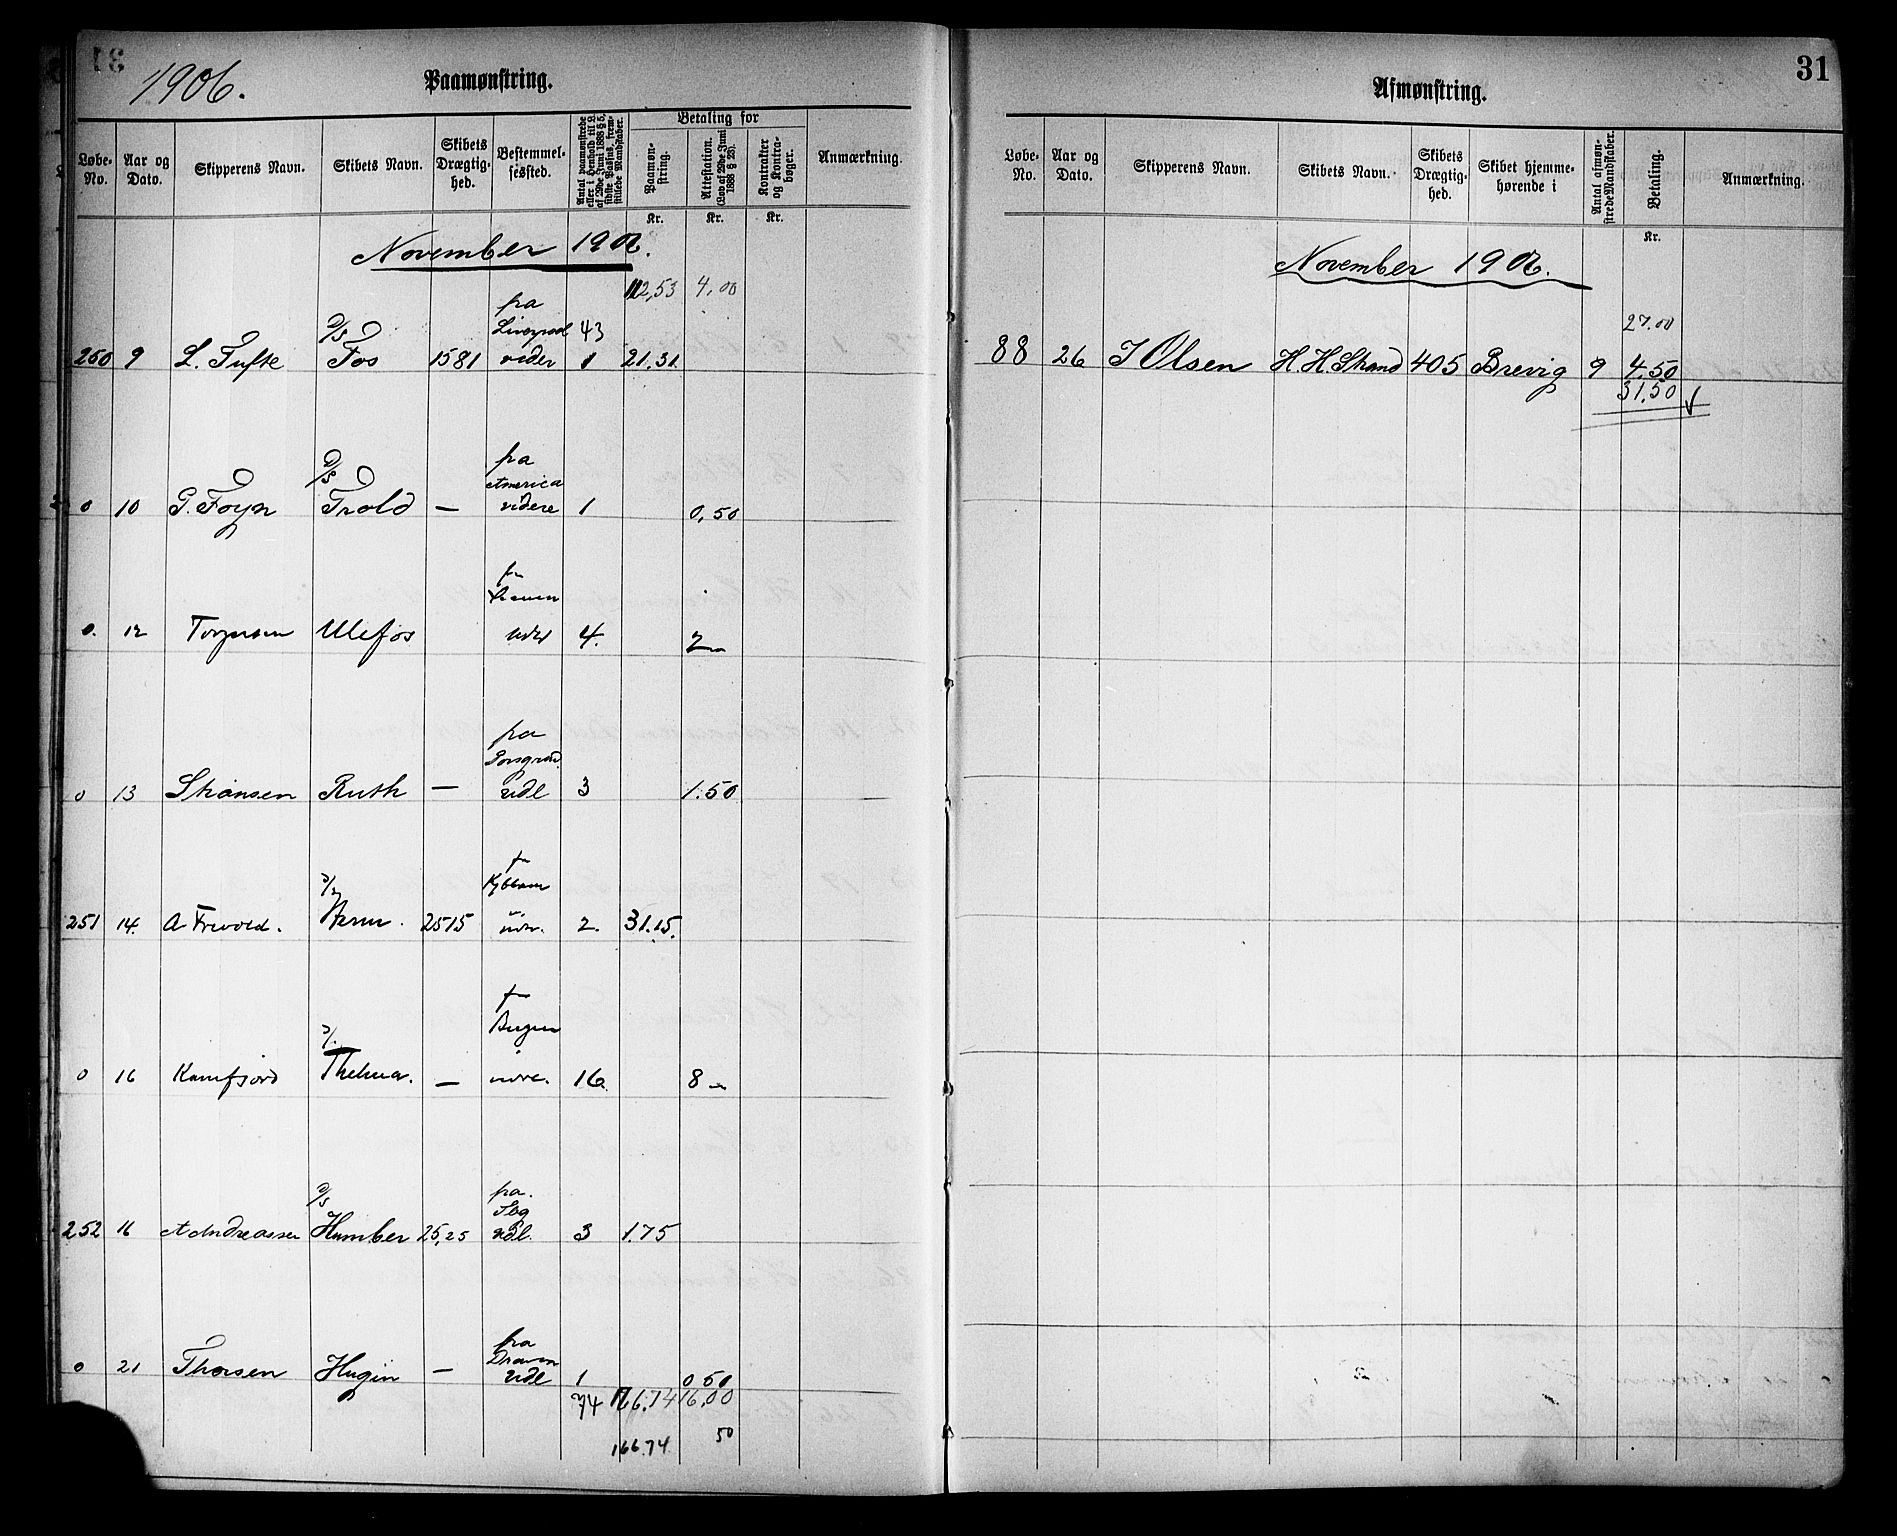 1906.
Paamønstring.
Løbe-No.
Aar og Dato.
Skipperens Navn.
Skibets Navn.
Skibets Drægtighed.
Bestemmelsessted.
Antal paamønstrede eller i Henhold til L. af 29de Juni 1888 § 5, sidste Passus, fremstillede Mandskaber.
Betaling for
Paamønstring.
Attestation. (Lov af 29de Juni 1888 § 23).
Kontrakter og Kontrabøger.
Anmærkning.
Kr. Kr. Kr.
November 1906.
112,53 4,00
fra
D/S Liverpool 43
250 9 L. Tufte Fos 1581 videre 1 21.31
fra
D/S America
0 10 G. Foyn Trold — videre 1 0,50
0. 12 Torjersen Ulefos 4. 2
fra
Porsgrund
0 13 Skansen Ruth — vide 3 1.50
251 14. A 2515 2. 31.15.
0 16 Kamfjord Thelma. — 16 8 —
D/S fra
252 16 A Andreassen Humber 25,25 vide. 3 1.75
fra
Drammen
0 21 Thorsen Hugin — vide 1 0 50
74 166.74 16,00
166.74 50
31
Afmønstring.
Løbe-No.
Aar og Dato.
Skipperens Navn.
Skibets Navn.
Skibets Drægtighed.
Skibet hjemmehørende i
Antal afmønstrede Mandskaber.
Betaling.
Anmærkning.
Kr.
November 1906.
27.00
88 26 J Olsen H. H. Strand 405 Brevig 9 4.50
31.50 √